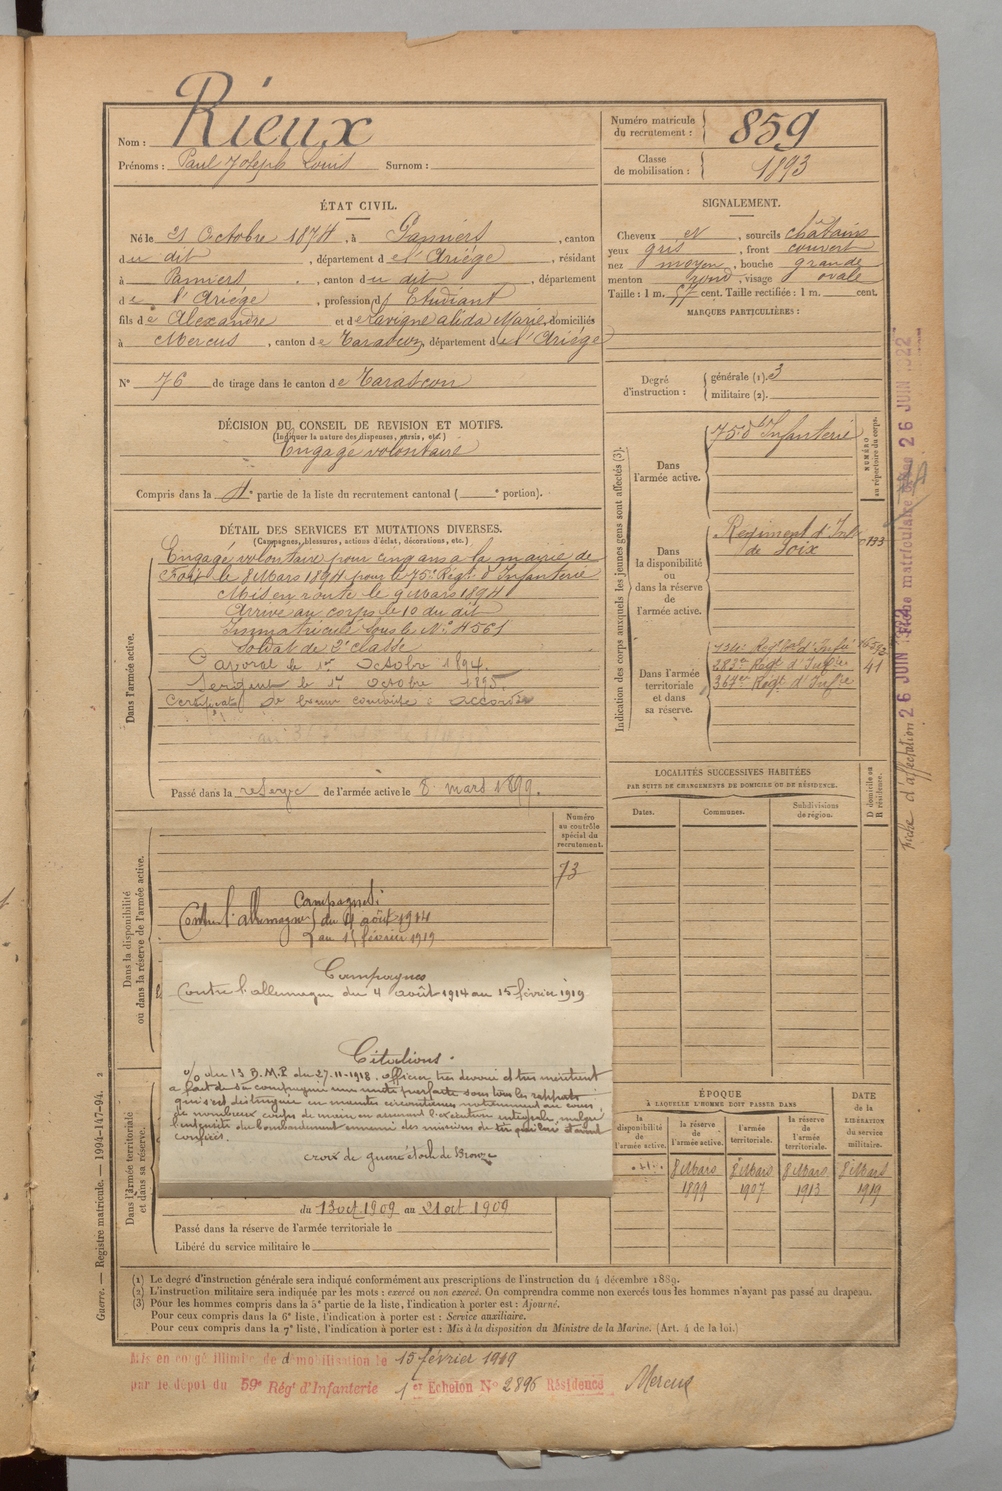 Nom : Rieux
Prénoms : Paul Joseph Louis Surnom :
Numéro matricule du recrutement : 859
Classe de mobilisation : 1893
ÉTAT CIVIL.
Né le 21 Octobre 1874, à Pamiers, canton
du dit, département de l'Ariége, résidant
à Pamiers, canton du dit, département
de l'Ariége, profession d' Etudiant
fils de Alexandre et de Lavigne alida Marie, domiciliés
à Mercus, canton de Tarascon, département de l'Ariége
N° 76 de tirage dans le canton de Tarascon
SIGNALEMENT.
Cheveux et, sourcils châtains
yeux gris, front couvert
nez moyen, bouche grande
menton rond, visage ovale
Taille : 1 m. cent. Taille rectifiée : 1 m. cent.
MARQUES PARTICULIÈRES :
Degré d'instruction : générale (1). 3
militaire (2).
DÉCISION DU CONSEIL DE REVISION ET MOTIFS.
(Indiquer la nature des dispenses, sursis, etc.)
Engagé volontaire
Compris dans la partie de la liste du recrutement cantonal ( e portion).
DÉTAIL DES SERVICES ET MUTATIONS DIVERSES.
(Campagnes, blessures, actions d'éclat, décorations, etc.)
Dans l'armée active.
Engagé volontaire pour cinq ans a la mairie de
Foix le 8 Mars 1894 pour le 75e Régt d'Infanterie
Mis en route le 9 Mars 1894
Arrivé au corps le 10 du dit
Immatriculé sous le N° 4561
Soldat de 2e classe
Caporal le 1er Octobre 1894.
Sergent le 1er Octobre 1895.
Certificat de bonne conduite : accordé
Passé dans la réserve de l'armée active le 8 mars 1899.
Indication des corps auxquels les jeunes gens sont affectés (3).
NUMÉRO au répertoire du corps.
Dans l'armée active.
75e d'Infanterie
Dans la disponibilité ou dans la réserve de l'armée active.
Regiment d'Inf
de Foix
Dans l'armée territoriale et dans sa réserve.
134e Regt d'Infie
283e Regt d'Infie 41
367e Regt d'Infie
LOCALITÉS SUCCESSIVES HABITÉES
PAR SUITE DE CHANGEMENTS DE DOMICILE OU DE RÉSIDENCE.
Dates. Communes. Subdivisions de région. D domicile ou R résidence.
Dans la disponibilité ou dans la réserve de l'armée active.
Numéro au contrôle spécial du recrutement.
73
Campagnes
Contre l'allemagne du 4 août 1914
au 15 février 1919
Campagnes
Contre l'allemagne du 4 août 1914 au 15 février 1919
Citations.
du 13 B.M.P. du 27-11-1918. officier très devoué et très méritant
a fait de sa compagnie une unité parfaite sous tous les rapports
qui s'est distinguée en maintes circonstances notamment au cours
de nombreux coups de main en assurant l'exécution intégrale malgré
l'intensité du bombardement ennemi des missions
confiées.
croix de guerre étoile de Bronze
Dans l'armée territoriale et dans sa réserve.
du 13 oct 1909 au 21 oct 1909
Passé dans la réserve de l'armée territoriale le
Libéré du service militaire le
ÉPOQUE
A LAQUELLE L'HOMME DOIT PASSER DANS
la disponibilité de l'armée active. la réserve de l'armée active. l'armée territoriale. la réserve de l'armée territoriale.
DATE de la LIBÉRATION du service militaire.
8 Mars 1899 8 Mars 1907 8 Mars 1913 8 Mars 1919
(1) Le degré d'instruction générale sera indiqué conformément aux prescriptions de l'instruction du 4 décembre 1889.
(2) L'instruction militaire sera indiquée par les mots : exercé ou non exercé. On comprendra comme non exercés tous les hommes n'ayant pas passé au drapeau.
(3) Pour les hommes compris dans la 5e partie de la liste, l'indication à porter est : Ajourné.
Pour ceux compris dans la 6e liste, l'indication à porter est : Service auxiliaire.
Pour ceux compris dans la 7e liste, l'indication à porter est : Mis à la disposition du Ministre de la Marine. (Art. 4 de la loi.)
Mis en congé illimité de démobilisation le 15 février 1919
par le dépôt du 59e Régt d'Infanterie 1er Echelon N° 2896 Résidence Mercus
Guerre. — Registre matricule. — 1994-147-94.
Fiche d'affectation 26 JUIN 1922
Fiche matriculaire 26 JUIN 1922